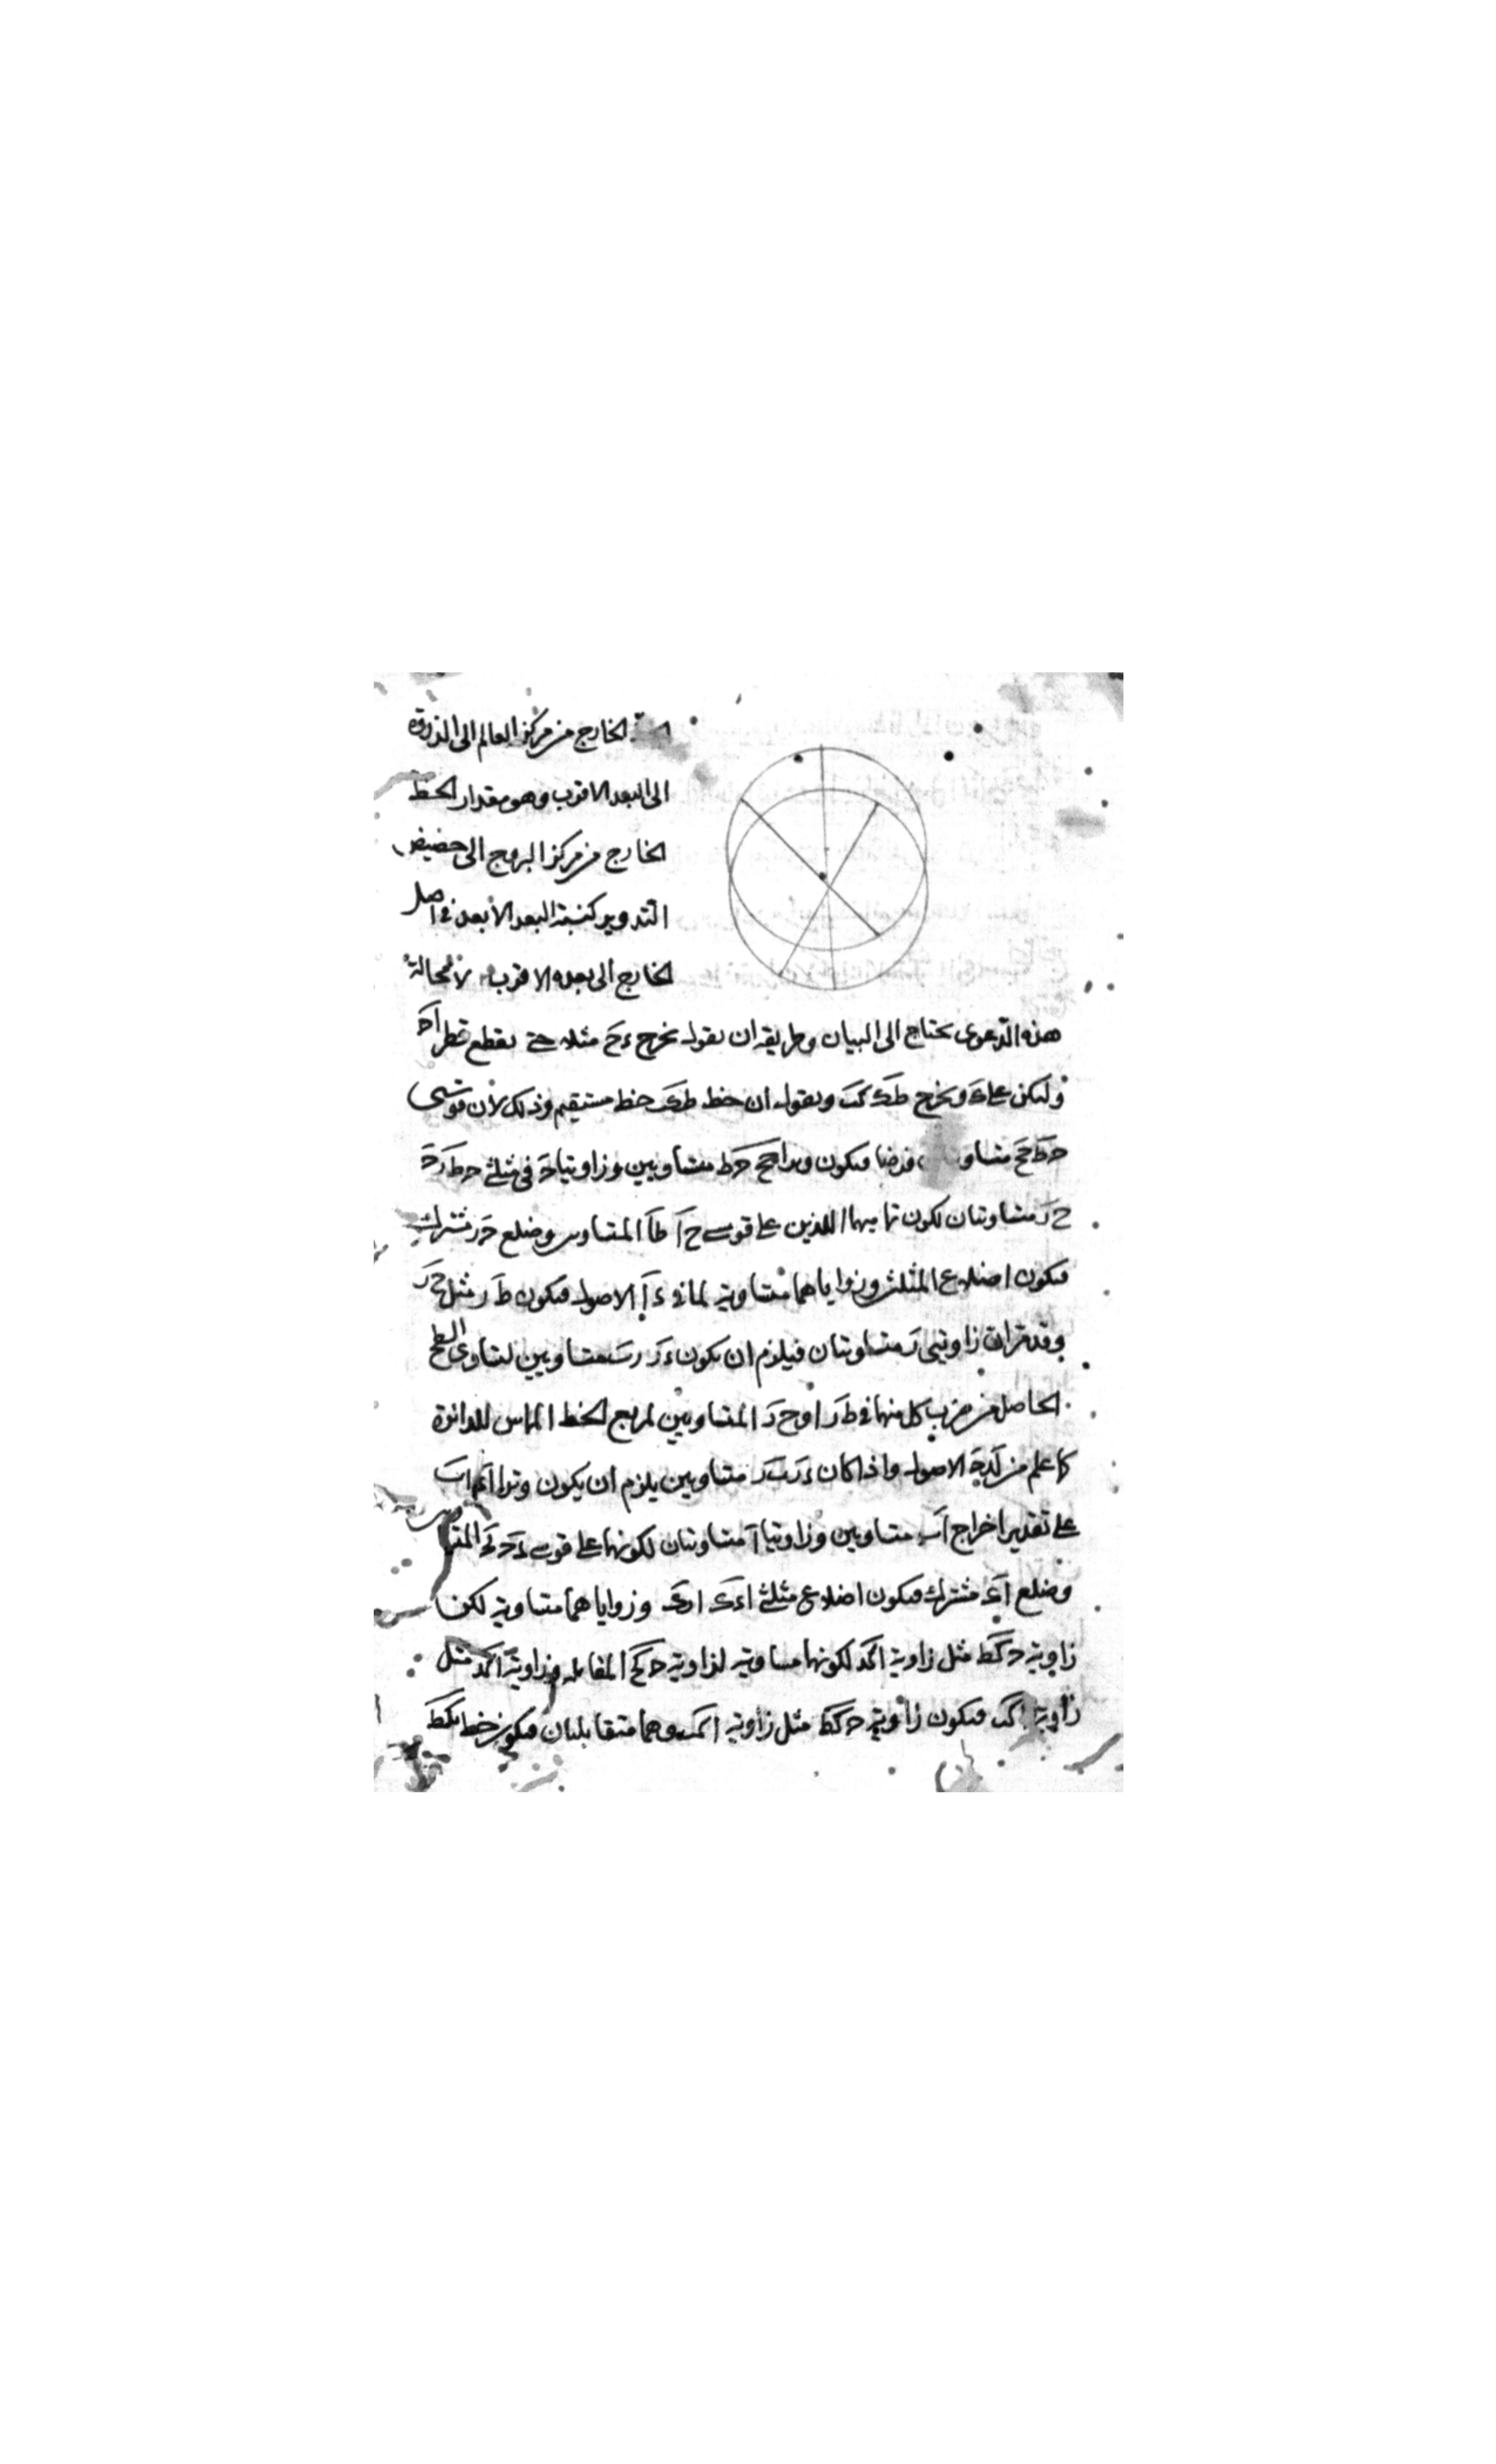 الخارج من مركز العالم الى الذروة
الى البعد الاقرب وهو مقدار الخط
الخارج من مركز البروج الى حضيض
التدوير كنسبة البعد الابعد في اصل
الخارج الى بعده الاقرب لا محالة
هذه الدعوى يحتاج الى البيان وطريقه ان نقول نخرج ءح مثلا حتى يقطع قطر اح
وليكن على ك ونخرج طك كب ونقول ان خط طكب خط مستقيم وذلك لان قوسي
حط حح فرضا فيكون وترا حح حط متساويين وزاويتا ح في مثلثي حطر ح
ح ر متساويتان لكون تماميهما اللذين على قوسي ح ا طا المتساويين وضلع حر مشترك
فيكون اضلاع المثلثين وزواياهما متساوية لما في ء ا الاصول فيكون ط ر مثل ح ر
وقد مر ان زاويتي ر متساويتان فيلزم ان يكون ءر رب متساويين لتساوي السطح
الحاصل من ضرب كل منهما في طر او حر المتساويين لمربع الخط المماس للدائرة
كما علم من الاصول واذا كان ءر بر متساويين يلزم ان يكون وترا اء اب
على تقدير اخراج اب متساويين وزاويتا ا متساويتان لكونهما على قوسي
وضلع اك مشترك فيكون اضلاع مثلثي اءك ابك وزواياهما متساوية لكن
زاوية حكط مثل زاوية اكد لكونها مساوية لزاوية حكح المقابلة وزاوية اكد مثل
زاوية اكب فيكون زاوية حكط مثل زاوية اكب وهما متقابلتان فيكون خط بكط